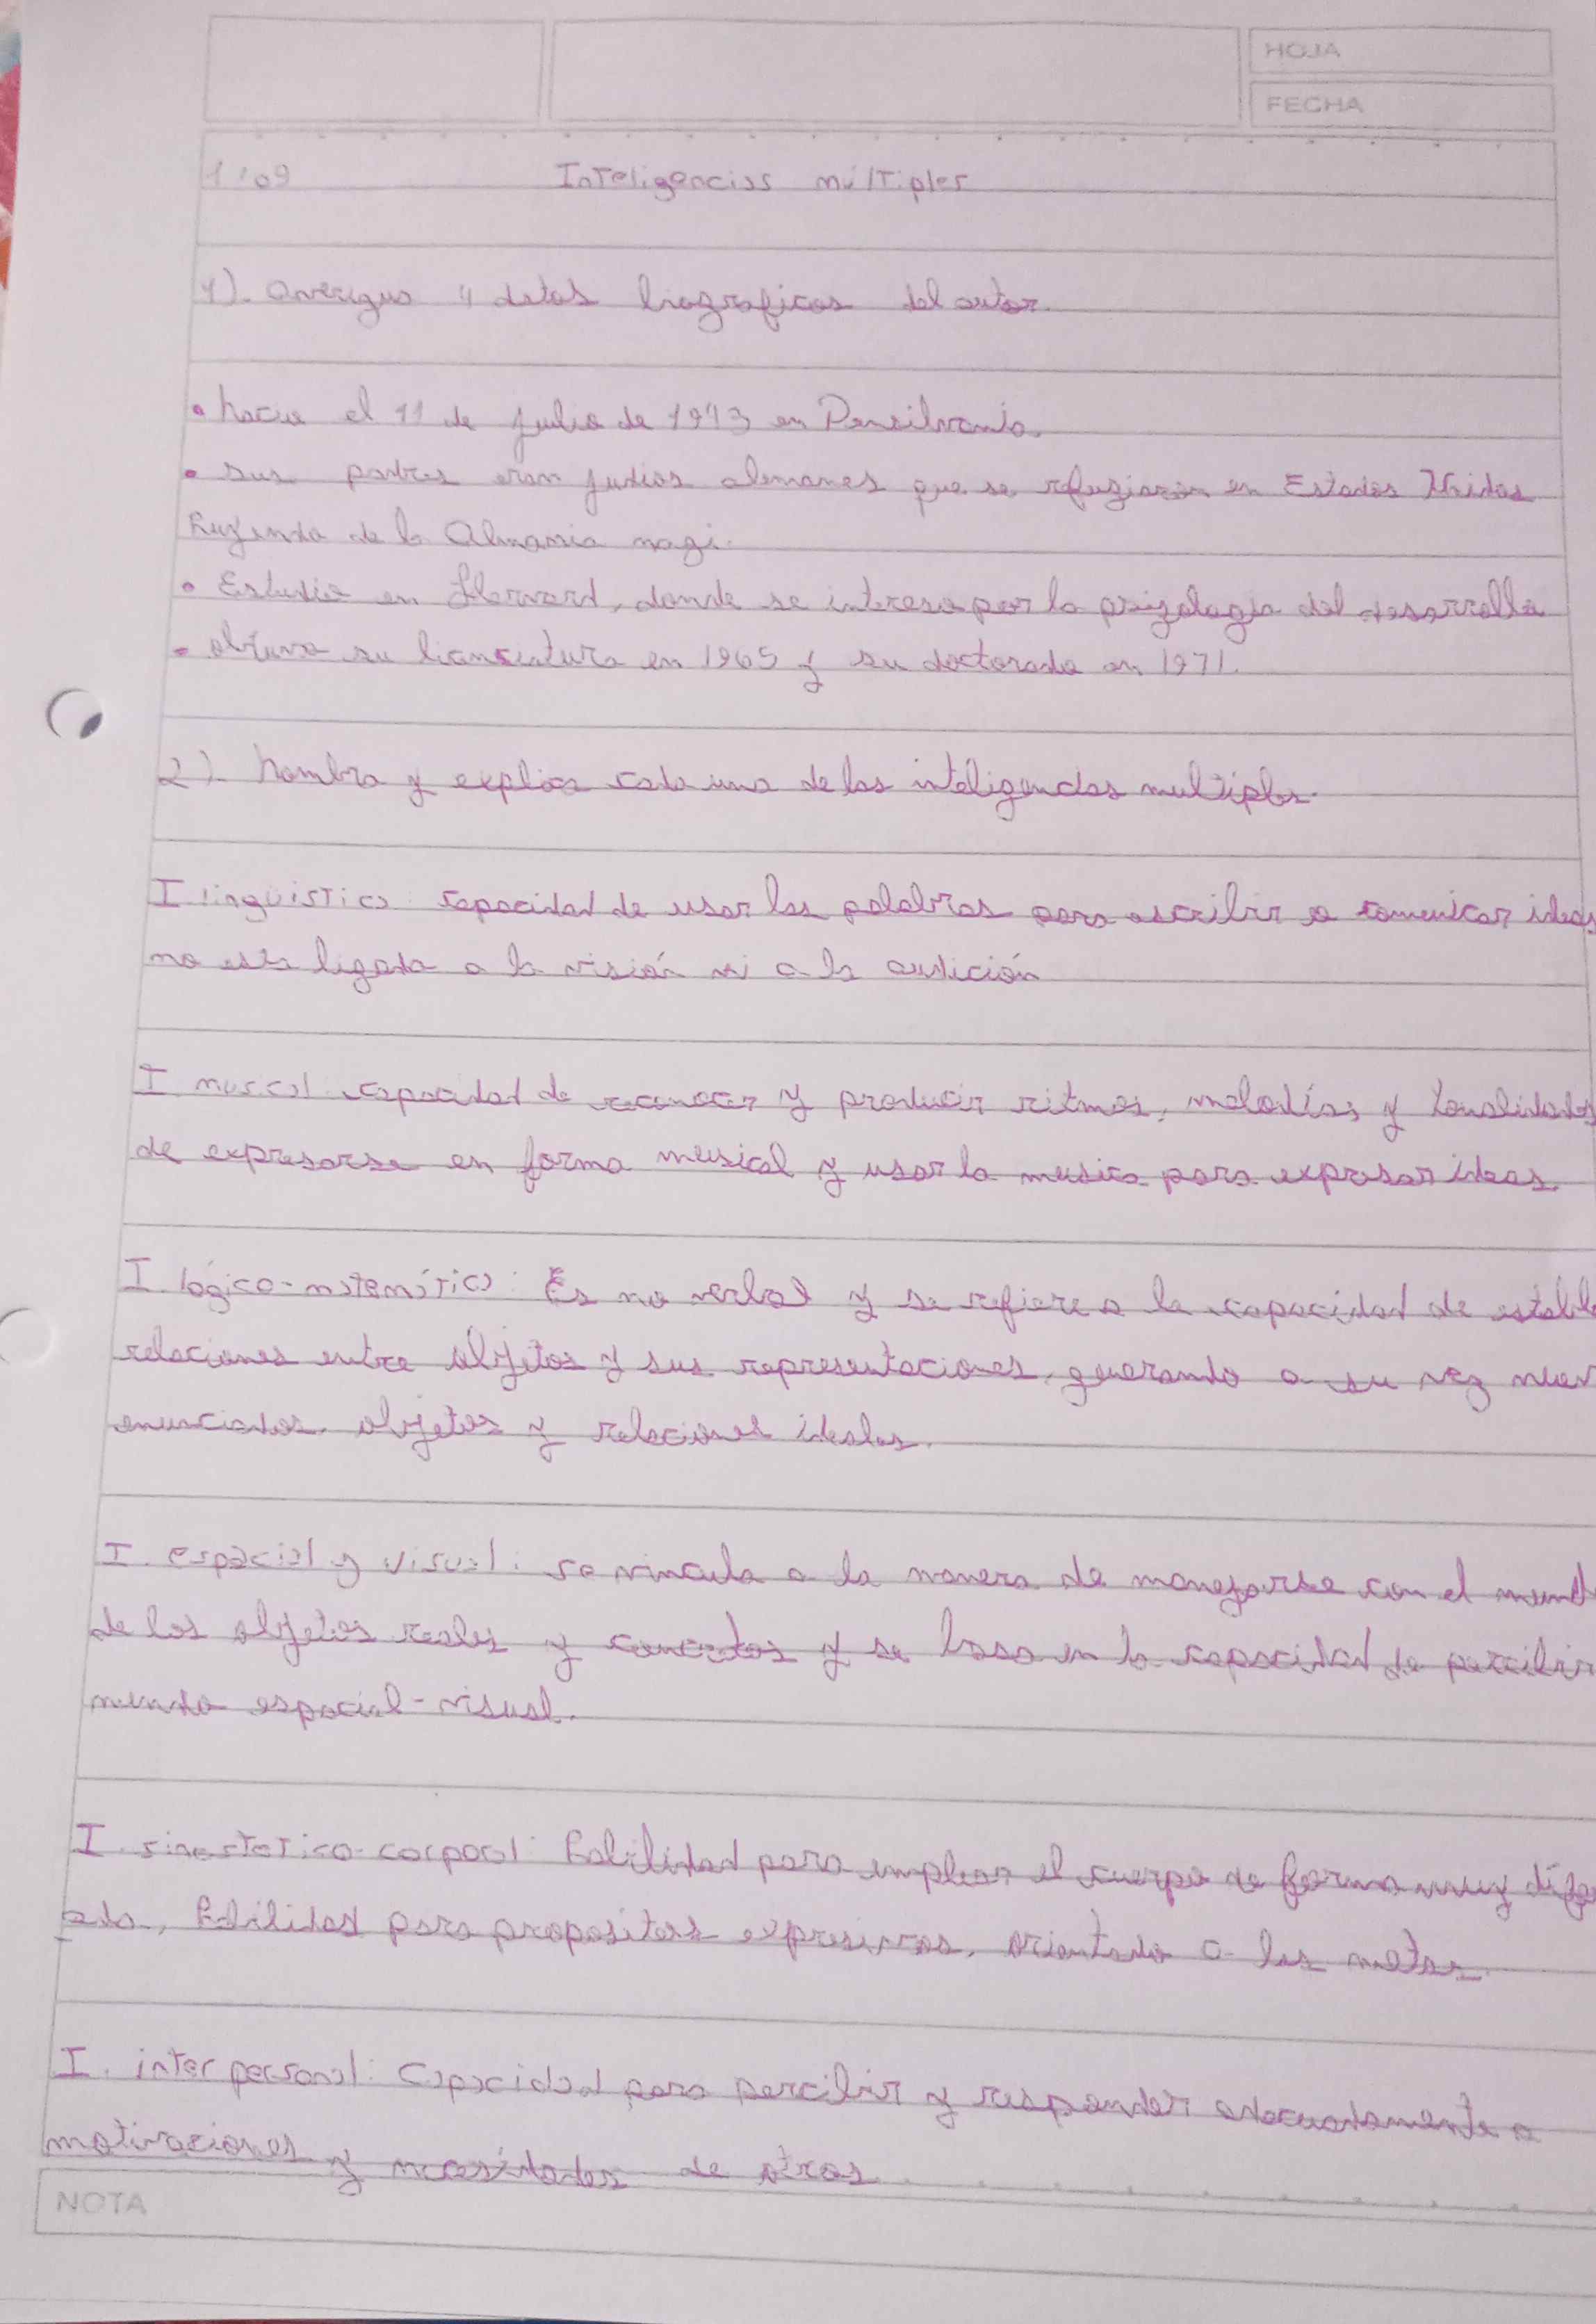 HOJA
FECHA
1/09 Inteligencias múltiples
1). Averigua 4 datos biograficos del autor.
• nacio el 11 de julio de 1943 en Pensilvania.
• sus padres eran judios alemanes que se refugiaron en Estados Unidos
huyendo de la Alemania nazi.
• Estudio en Harvard, donde se intereso por la psizologia del desarrollo
• obtuvo su licenciatura en 1965 y su doctorado en 1971.
2). Nombra y explica cada una de las inteligencias multiples.
I lingüistica: capacidad de usar las palabras para escribir o comunicar ideas
no esta ligada a la visión ni a la audición
I. musical: capacidad de reconocer y producir ritmos, melodías y tonalidades
de expresarse en forma musical y usar la musica para expresar ideas.
I. lógico-matemática: Es no verbal y se refiere a la capacidad de estable
relaciones entre objetos y sus representaciones, generando a su vez nuev
enunciados, objetos y relaciones ideales.
I. espacial y visual: se vincula a la manera de manejarse con el mund
de los objetos reales y concretos y se basa en la capacidad de percibir
mundo espacial-visual.
I. sinestetico-corporal: habilidad para emplear el cuerpo de forma muy difer
ada, habilidad para propositos expresivos, orientada a las metas.
I. interpersonal: Capacidad para percibir y responder adecuadamente a
motivaciones y necesidades de otros.
NOTA